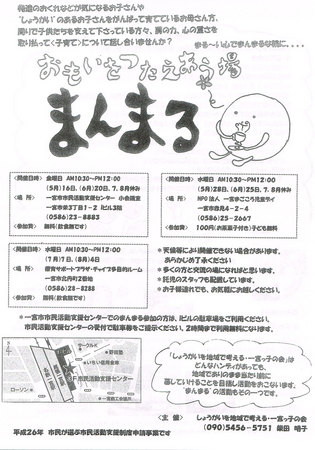 発達のおくれなどが気になるお子さんや
"しょうがい"のあるお子さんをがんばって育てているお母さん方、
周りで子供たちを支えて下さっている方々、肩の力、心の重さを
取り払って<子育て>について話し合いませんか?
まる〜い心でまんまるな話に・・・・
おもいをつたえあう場
まんまる
<開催日時> 金曜日 AM10:30〜PM12:00
(5月)16日、(6月)20日、7.8月休み
<場 所> 一宮市市民活動支援センター 小会議室
一宮市栄3丁目1-2 iビル3階
(0586)23-8883
<参加費> 無料(飲食願です)
<開催日時> 水曜日 AM10:30〜PM12:00
(5月)28日、(6月)25日、7.8月休み
<場 所> NPO法人 一宮かごころ児童ライ
一宮市森見4-2-4
(0586)25-2667
<参加費> 100円(お茶菓子付き)(子ども無料)
<開催日時> 水曜日 AM10:30〜PM12:00
(7月)7日、(8月)4日
<場 所> 療育サポートプラザ・チャイブ多目的ルーム
一宮市北丹町2番地
(0586)28-8288
<参加費> 無料(飲食願です)
*天候等により開催できない場合があります。
あらかじめ了承ください
*多くの方と交流の場になればと思います。
*託児のスタッフも配置しています。
*お子様連れでも、お気軽にお越しください。
*一宮市市民活動支援センターでのまんまる参加の方は、ビルの駐車場をご利用ください。
市民活動支援センターの受付で駐車券をご提示ください。2時間まで利用無料になります。
サークルK
いちい信用金庫
市民活動支援センター
ローソン
「しょうがいを地域で考える・一宮っ子の会」は
どんなハンディがあっても、
地域でありのまま当たり前に
暮していけることを目指し活動をおこないます。
"まんまる"も活動のその一つです。
<主 催> しょうがいを地域で考える・一宮っ子の会
(090)5456-5751 飯田 晴子
平成26年 市民が選ぶ市民活動支援制度申請事業です